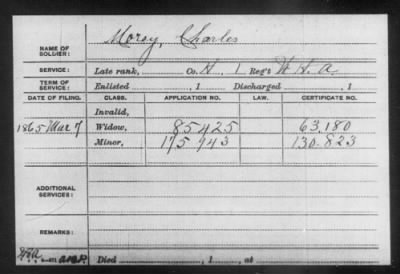 NAME OF SOLDIER: Morey, Charles
SERVICE: Late rank, Co. H, 1 Reg't H. A.
TERM OF SERVICE: Enlisted , 1 Discharged , 1
DATE OF FILING. CLASS. APPLICATION NO. LAW. CERTIFICATE NO.
Invalid,
1865 Mar 7 Widow, 85425 63.180
Minor, 175943 130.823
ADDITIONAL SERVICES:
REMARKS:
Died , 1 , at